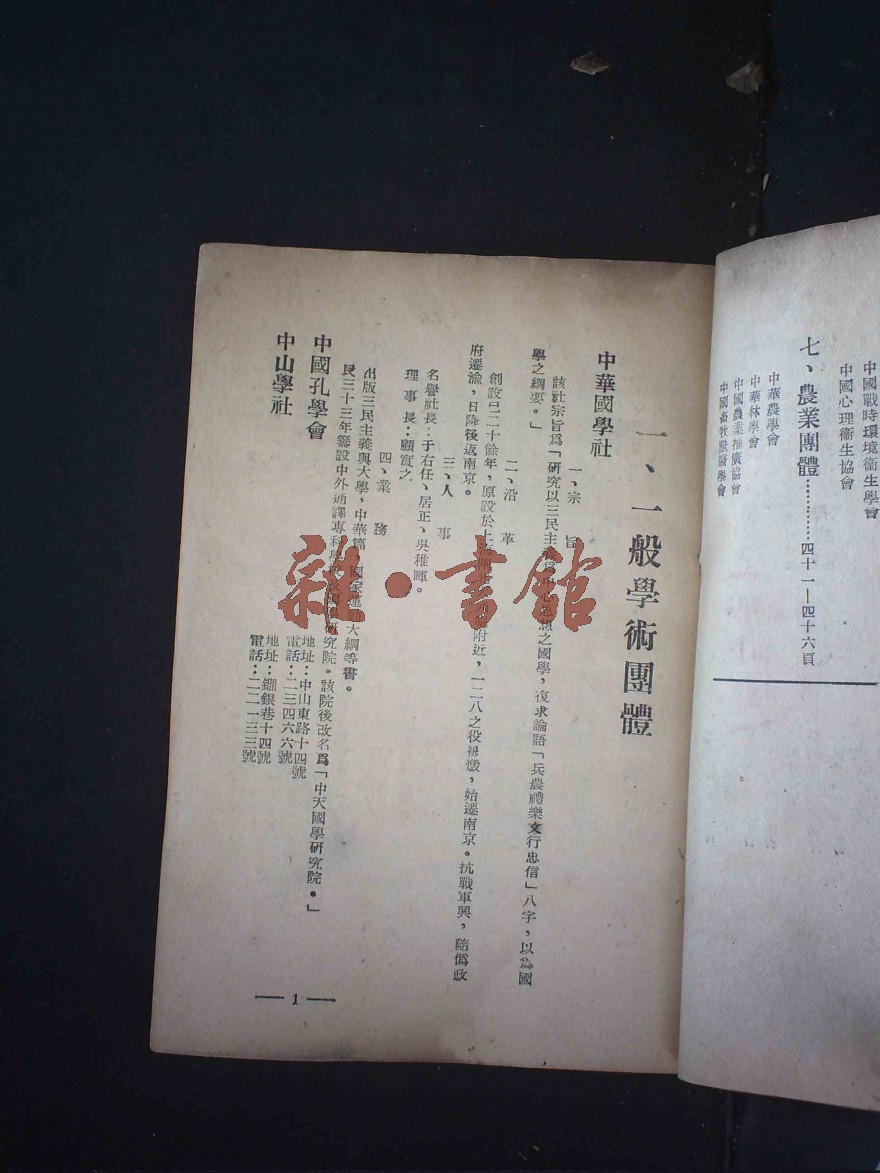 中國戰時環境衞生學會
中國心理衞生協會
七、農業團體…………四十一—四十六頁
中華農學會
中華林學會
中國農業推廣協會
中國畜牧獸醫學會
一、一般學術團體
中華國學社
一、宗旨
該社宗旨爲「研究以三民主義爲中心思想之國學，復求論語「兵農禮樂文行忠信」八字，以為國
學之綱要。」
二、沿革
創設已二十餘年，原設於上海附近，一二八之役被燬，始遷南京。抗戰軍興，陪僞政
府遷渝，日降後返南京。
三、人事
名譽社長：于右任、居正、吳稚暉。
理事長：顧實之
四、業務
出版三民主義與大學，中華篇，國家運動大綱等書。
民三十三年籌設中外通譯專科學校及國學研究院。該院後改名爲「中天國學研究院。」
中國孔學會
地址：中山東路十四號
電話：二三四六六號
中山學社
地址：銀巷十四號
電話：二二一三三號
— 1 —
雜·書館